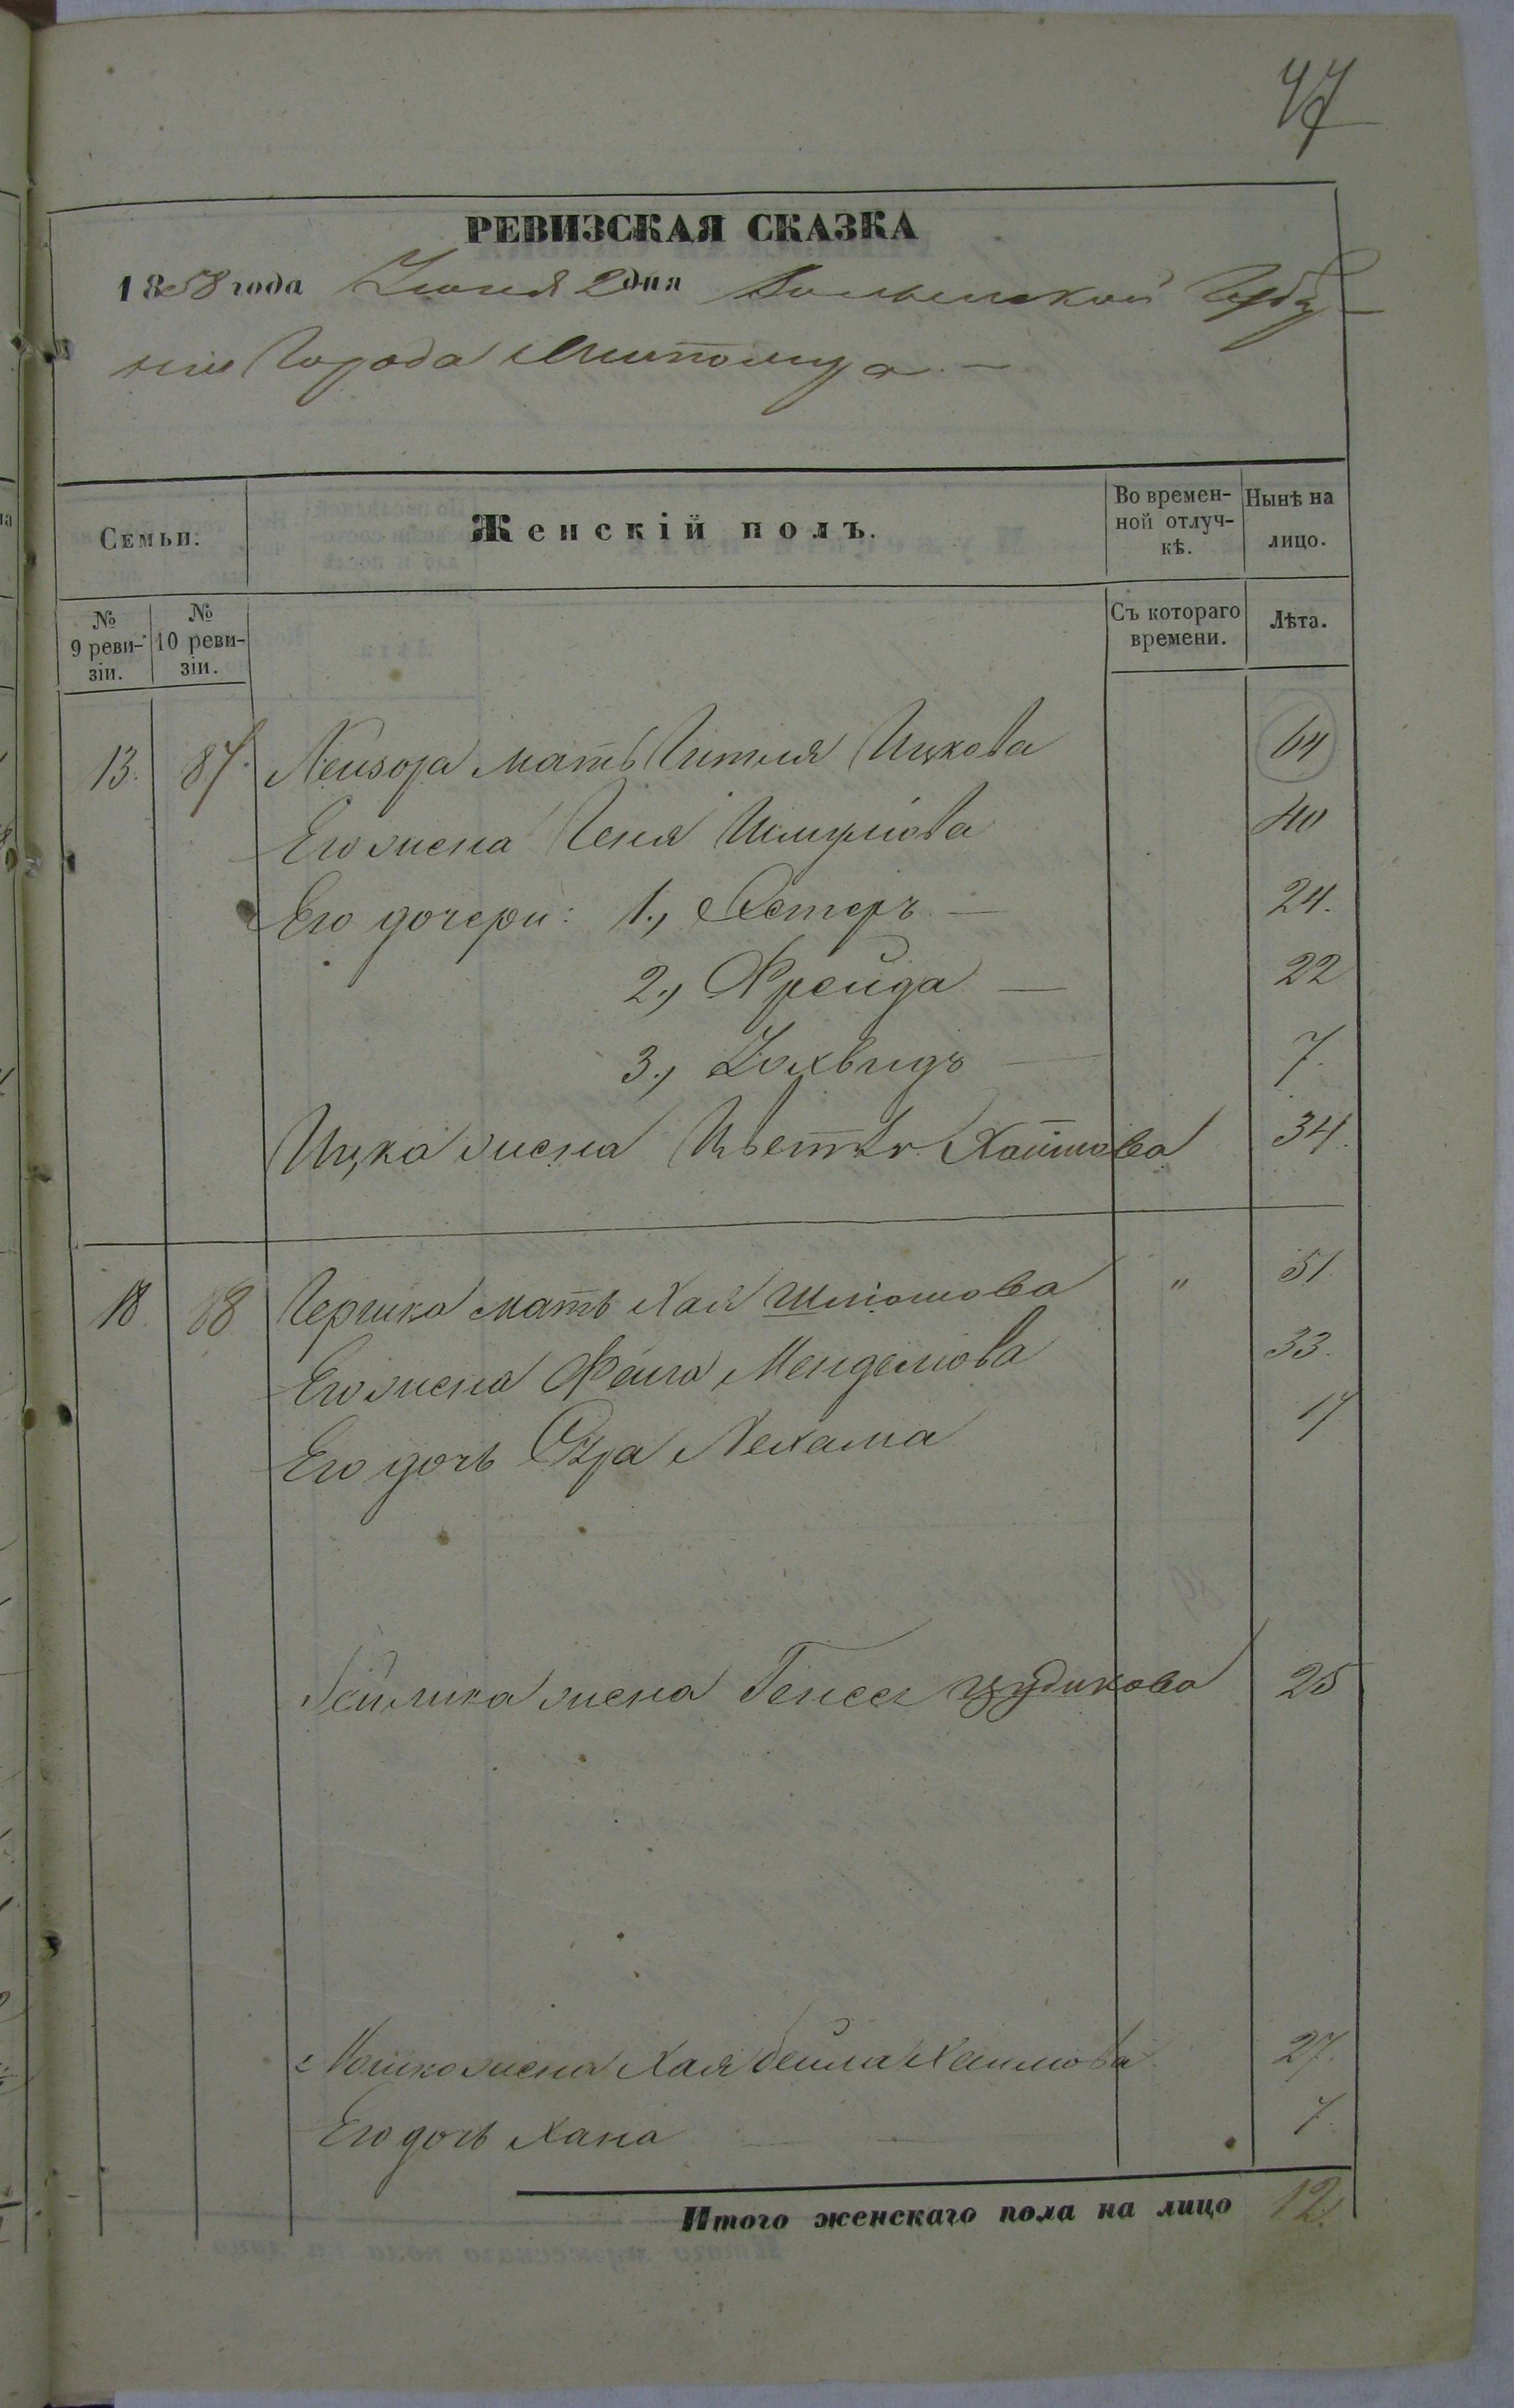 47
РЕВИЗСКАЯ СКАЗКА
1858 года Июня 2 дня Волынской Губер
нии Города Житомира. —
Семьи. Женскій полъ. Во времен-ной отлуч-кѣ. Нынѣ на лицо.
№ 9 реви-зіи. № 10 реви-зіи. Съ котораго времени. Лѣта.
13. 87. Лейзора мать Гитля Ицкова 64
Его жена Геня Шмулiова 40
Его дочери: 1., Эстеръ — 24.
2., Фрейда — 22
3., Iохвидъ — 7.
Ицка жена Цветля Хаимова 34.
18. 88 Гершка мать Хая Шліомова " 51.
Его жена Фейга Менделіова 33.
Его дочь Нехама 17
жена Генся 25
Іошка жена Хая Бейла Хаимова 27.
Его дочь Хана 7.
Итого женскаго пола на лицо 12.